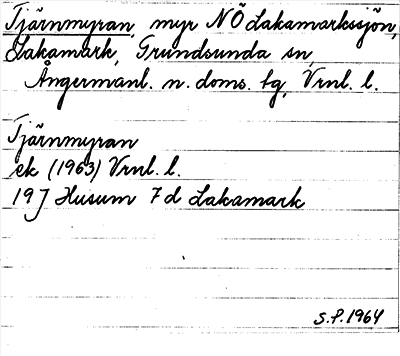 Tjärnmyran, myr NÖ Lakamarkssjön,
Lakamark, Grundsunda sn,
Ångermanl. n. doms. tg, Vrnl. l.
Tjärnmyran
ek (1963) Vrnl. l.
19J Husum 7d Lakamark
S.P. 1964